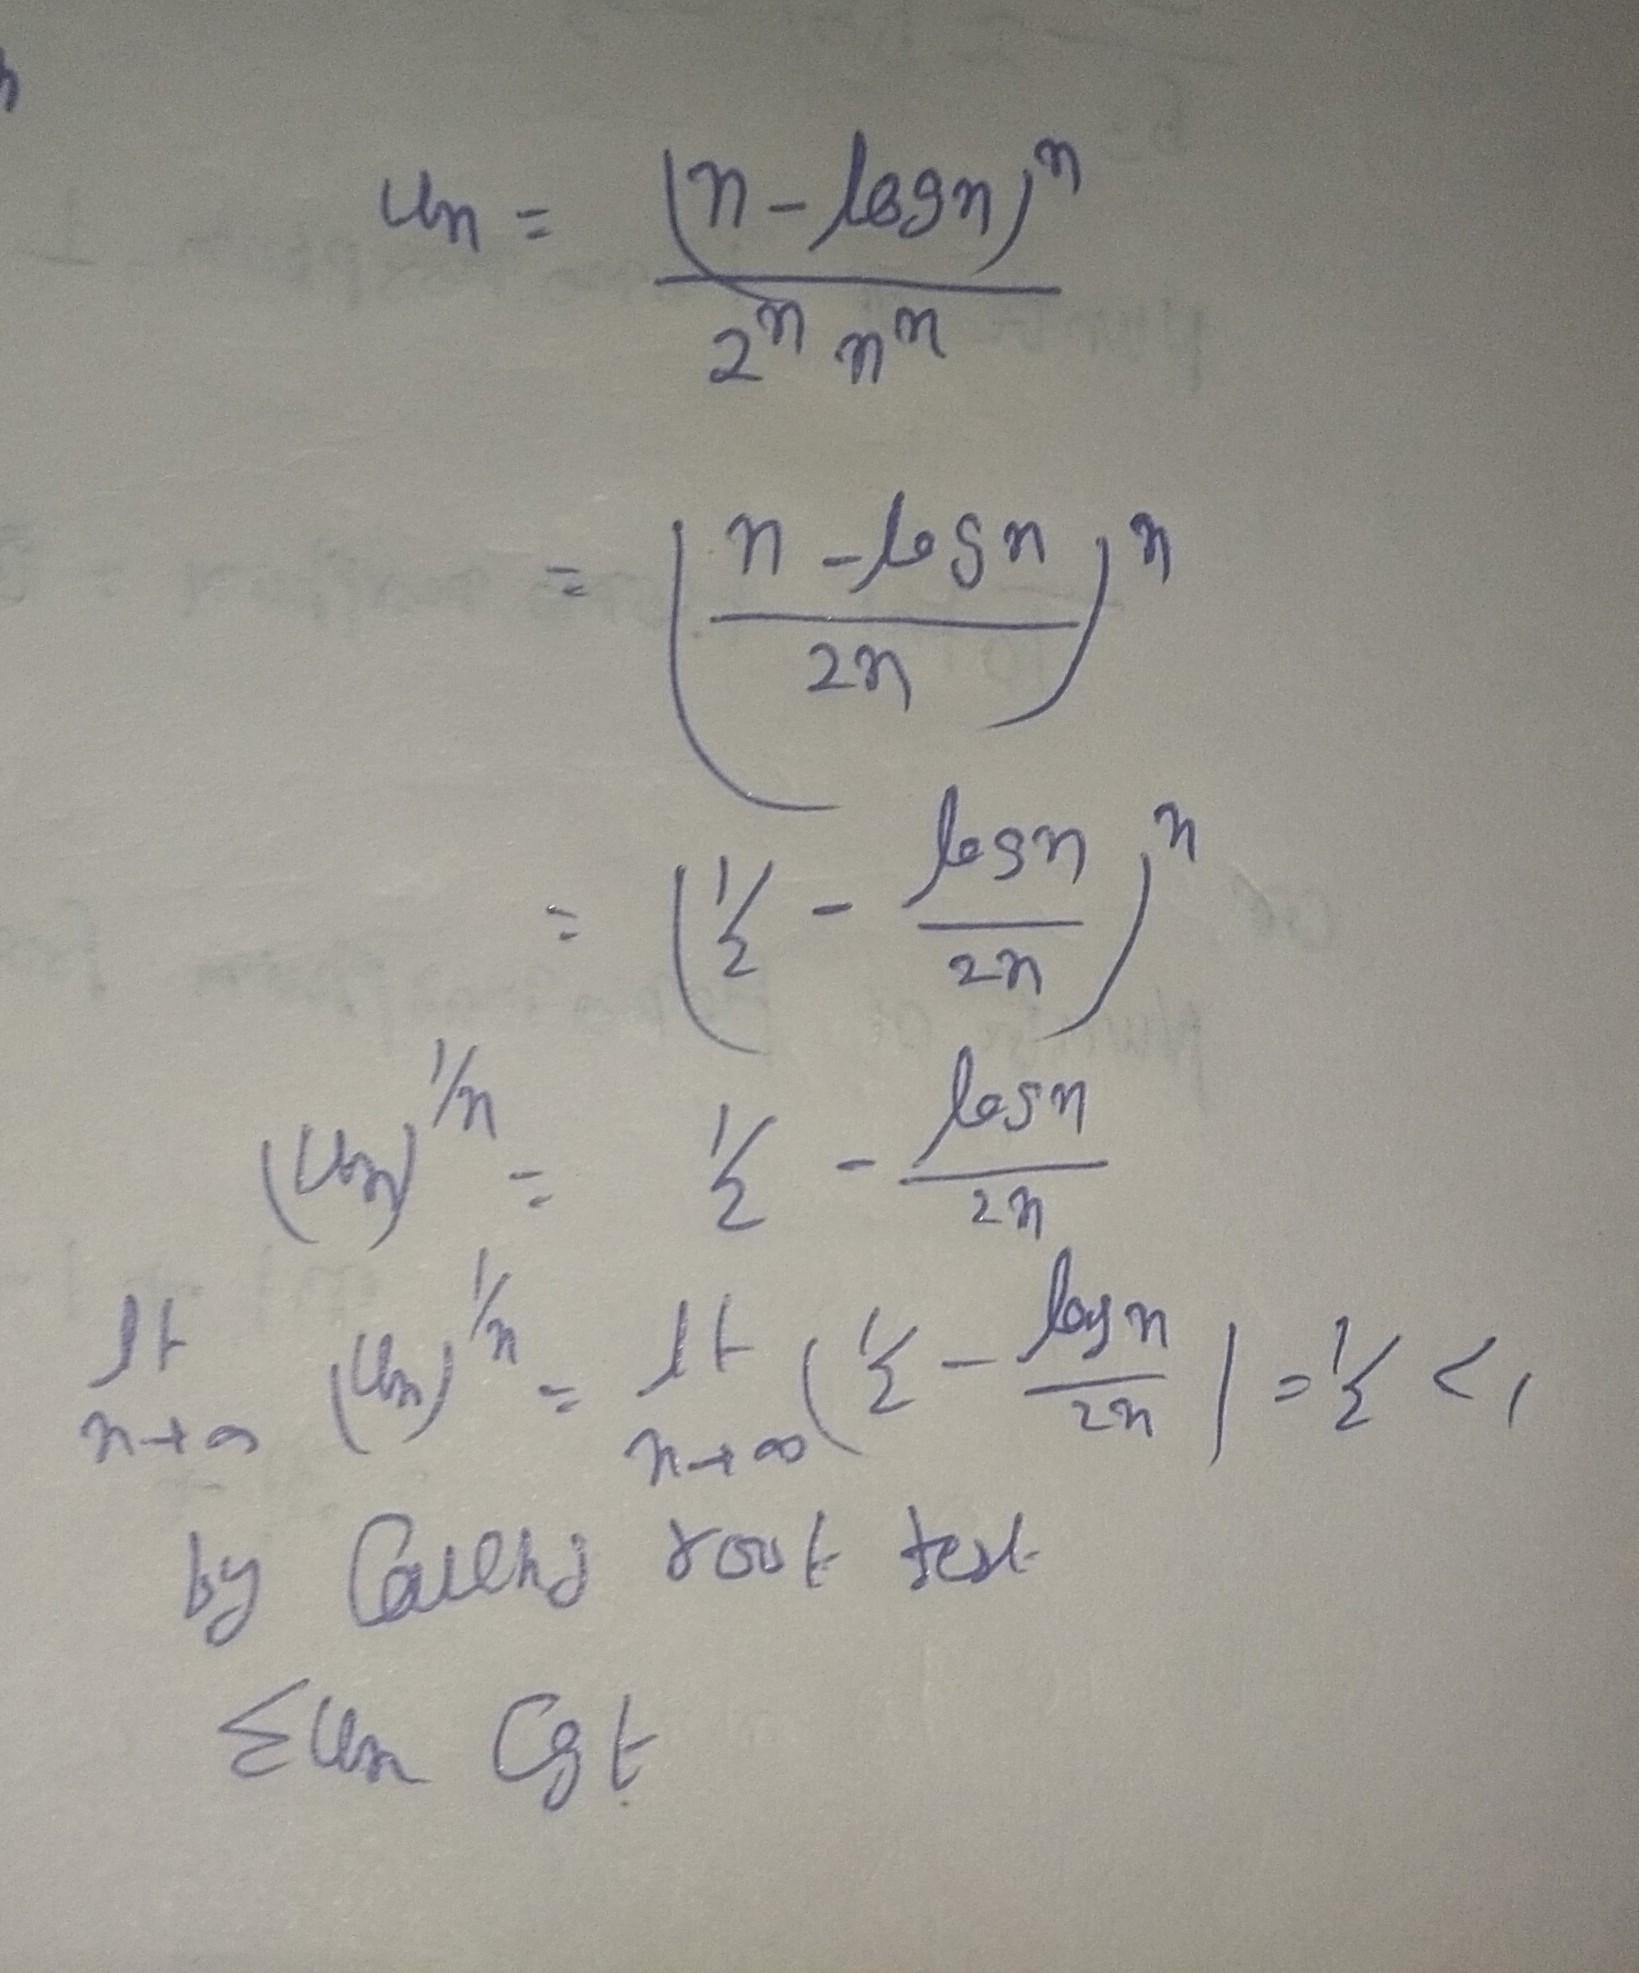 un = (n - logn)^n / 2^n n^n
= ((n - logn) / 2n)^n
= (1/2 - logn / 2n)^n
(un)^1/n = 1/2 - logn / 2n
lt n→∞ (un)^1/n = lt n→∞ (1/2 - logn / 2n) = 1/2 < 1
by Cauchy root test
Σun Cgt